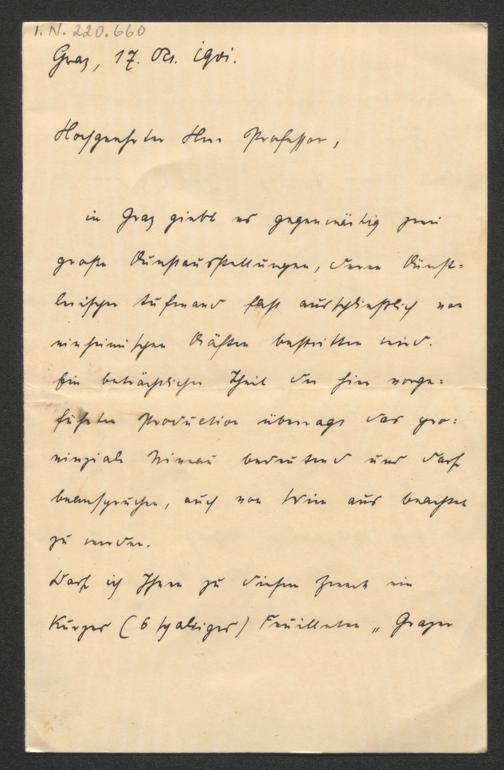 I. N. 220.660
Graz, 17. Okt. 1901.
Hochgeehrter Herr Professor,
in Graz giebt es gegenwärtig zwei
große Kunstausstellungen, deren künst-
lerischer Aufwand fast ausschließlich von
einheimischen Kräften bestritten wird.
Ein beträchtlicher Theil der hier vorge-
führten Production überragt das pro-
vinziale Niveau bedeutend und darf
beanspruchen, auch von Wien aus beachtet
zu werden.
Darf ich Ihnen zu diesem Zweck ein
kurzes (6 spaltiges) Feuilleton „Grazer